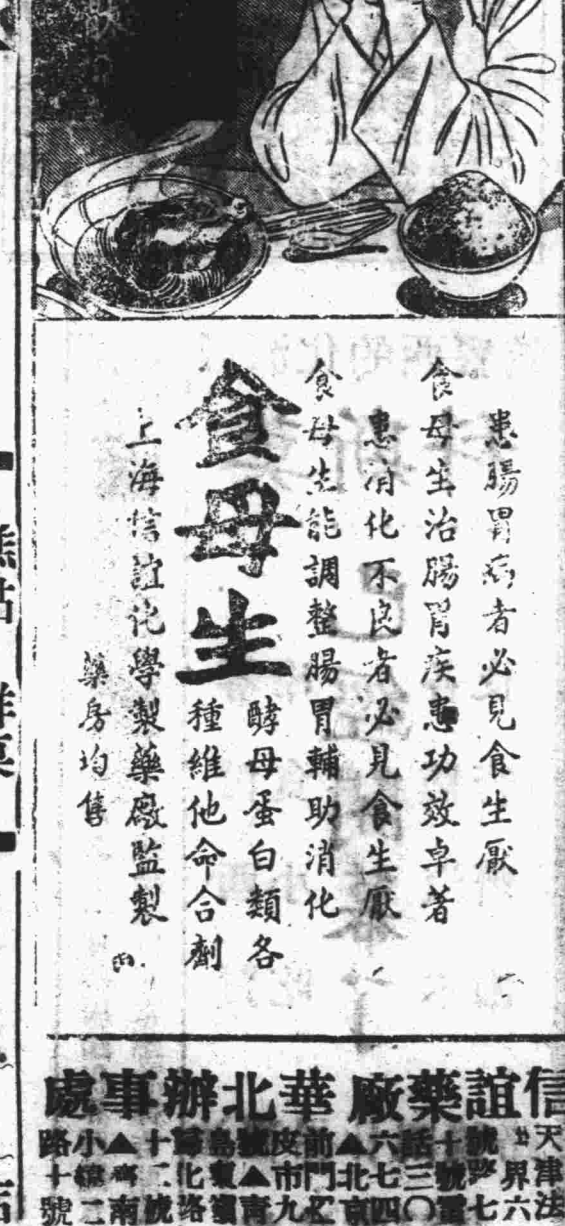 患腸胃病者必見食生厭
食母生治腸胃疾患功效卓著
患消化不良者必見食生厭
食母生能調整腸胃輔助消化
食母生
酵母蛋白類各
種維他命合劑
上海信誼化學製藥廠監製
藥房均售
信誼藥廠華北辦事處
天津法
界六
號路七
十號電
話三〇
六七四
▲北京
前門外
皮市九
號▲青
島
化路
十二號
▲濟南
小緯二
路十號